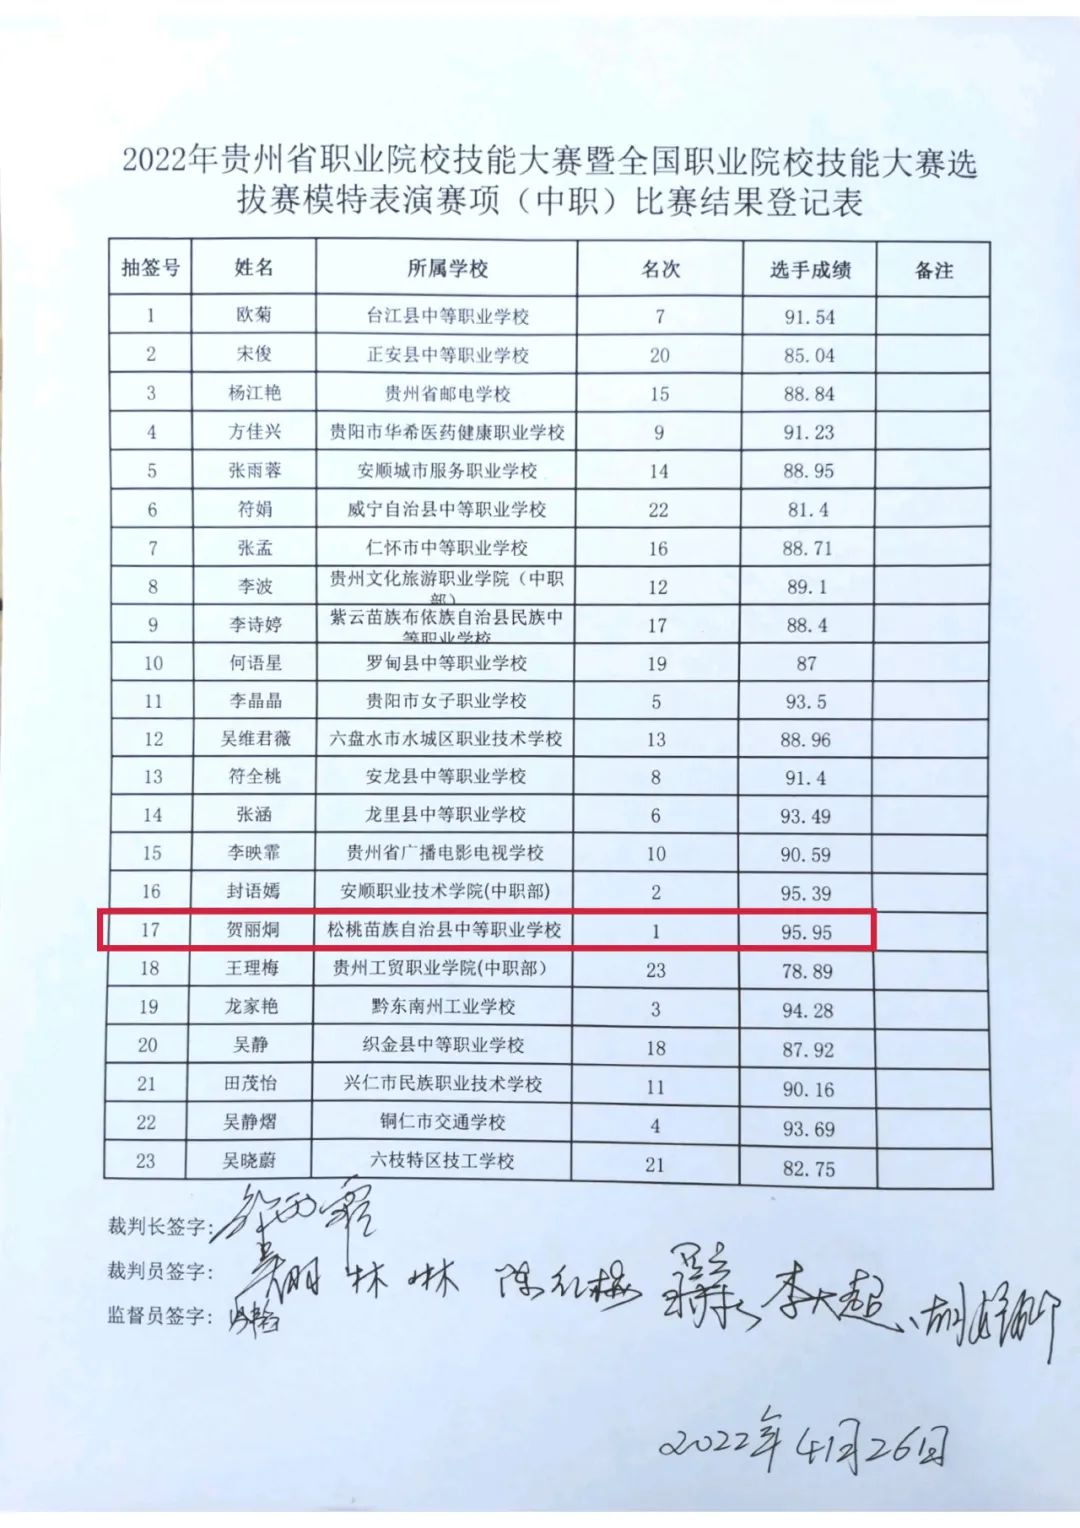 2022年贵州省职业院校技能大赛暨全国职业院校技能大赛选
拔赛模特表演赛项（中职）比赛结果登记表
抽签号 姓名 所属学校 名次 选手成绩 备注
1 欧菊 台江县中等职业学校 7 91.54
2 宋俊 正安县中等职业学校 20 85.04
3 杨江艳 贵州省邮电学校 15 88.84
4 方佳兴 贵阳市华希医药健康职业学校 9 91.23
5 张雨蓉 安顺城市服务职业学校 14 88.95
6 符娟 威宁自治县中等职业学校 22 81.4
7 张孟 仁怀市中等职业学校 16 88.71
8 李波 贵州文化旅游职业学院（中职部） 12 89.1
9 李诗婷 紫云苗族布依族自治县民族中等职业学校 17 88.4
10 何语星 罗甸县中等职业学校 19 87
11 李晶晶 贵阳市女子职业学校 5 93.5
12 吴维君薇 六盘水市水城区职业技术学校 13 88.96
13 符全桃 安龙县中等职业学校 8 91.4
14 张涵 龙里县中等职业学校 6 93.49
15 李映霏 贵州省广播电影电视学校 10 90.59
16 封语嫣 安顺职业技术学院(中职部) 2 95.39
17 贺丽炯 松桃苗族自治县中等职业学校 1 95.95
18 王理梅 贵州工贸职业学院(中职部） 23 78.89
19 龙家艳 黔东南州工业学校 3 94.28
20 吴静 织金县中等职业学校 18 87.92
21 田茂怡 兴仁市民族职业技术学校 11 90.16
22 吴静熠 铜仁市交通学校 4 93.69
23 吴晓蔚 六枝特区技工学校 21 82.75
裁判长签字：
裁判员签字： 林琳 陈红梅 李大超
监督员签字：
2022年4月26日